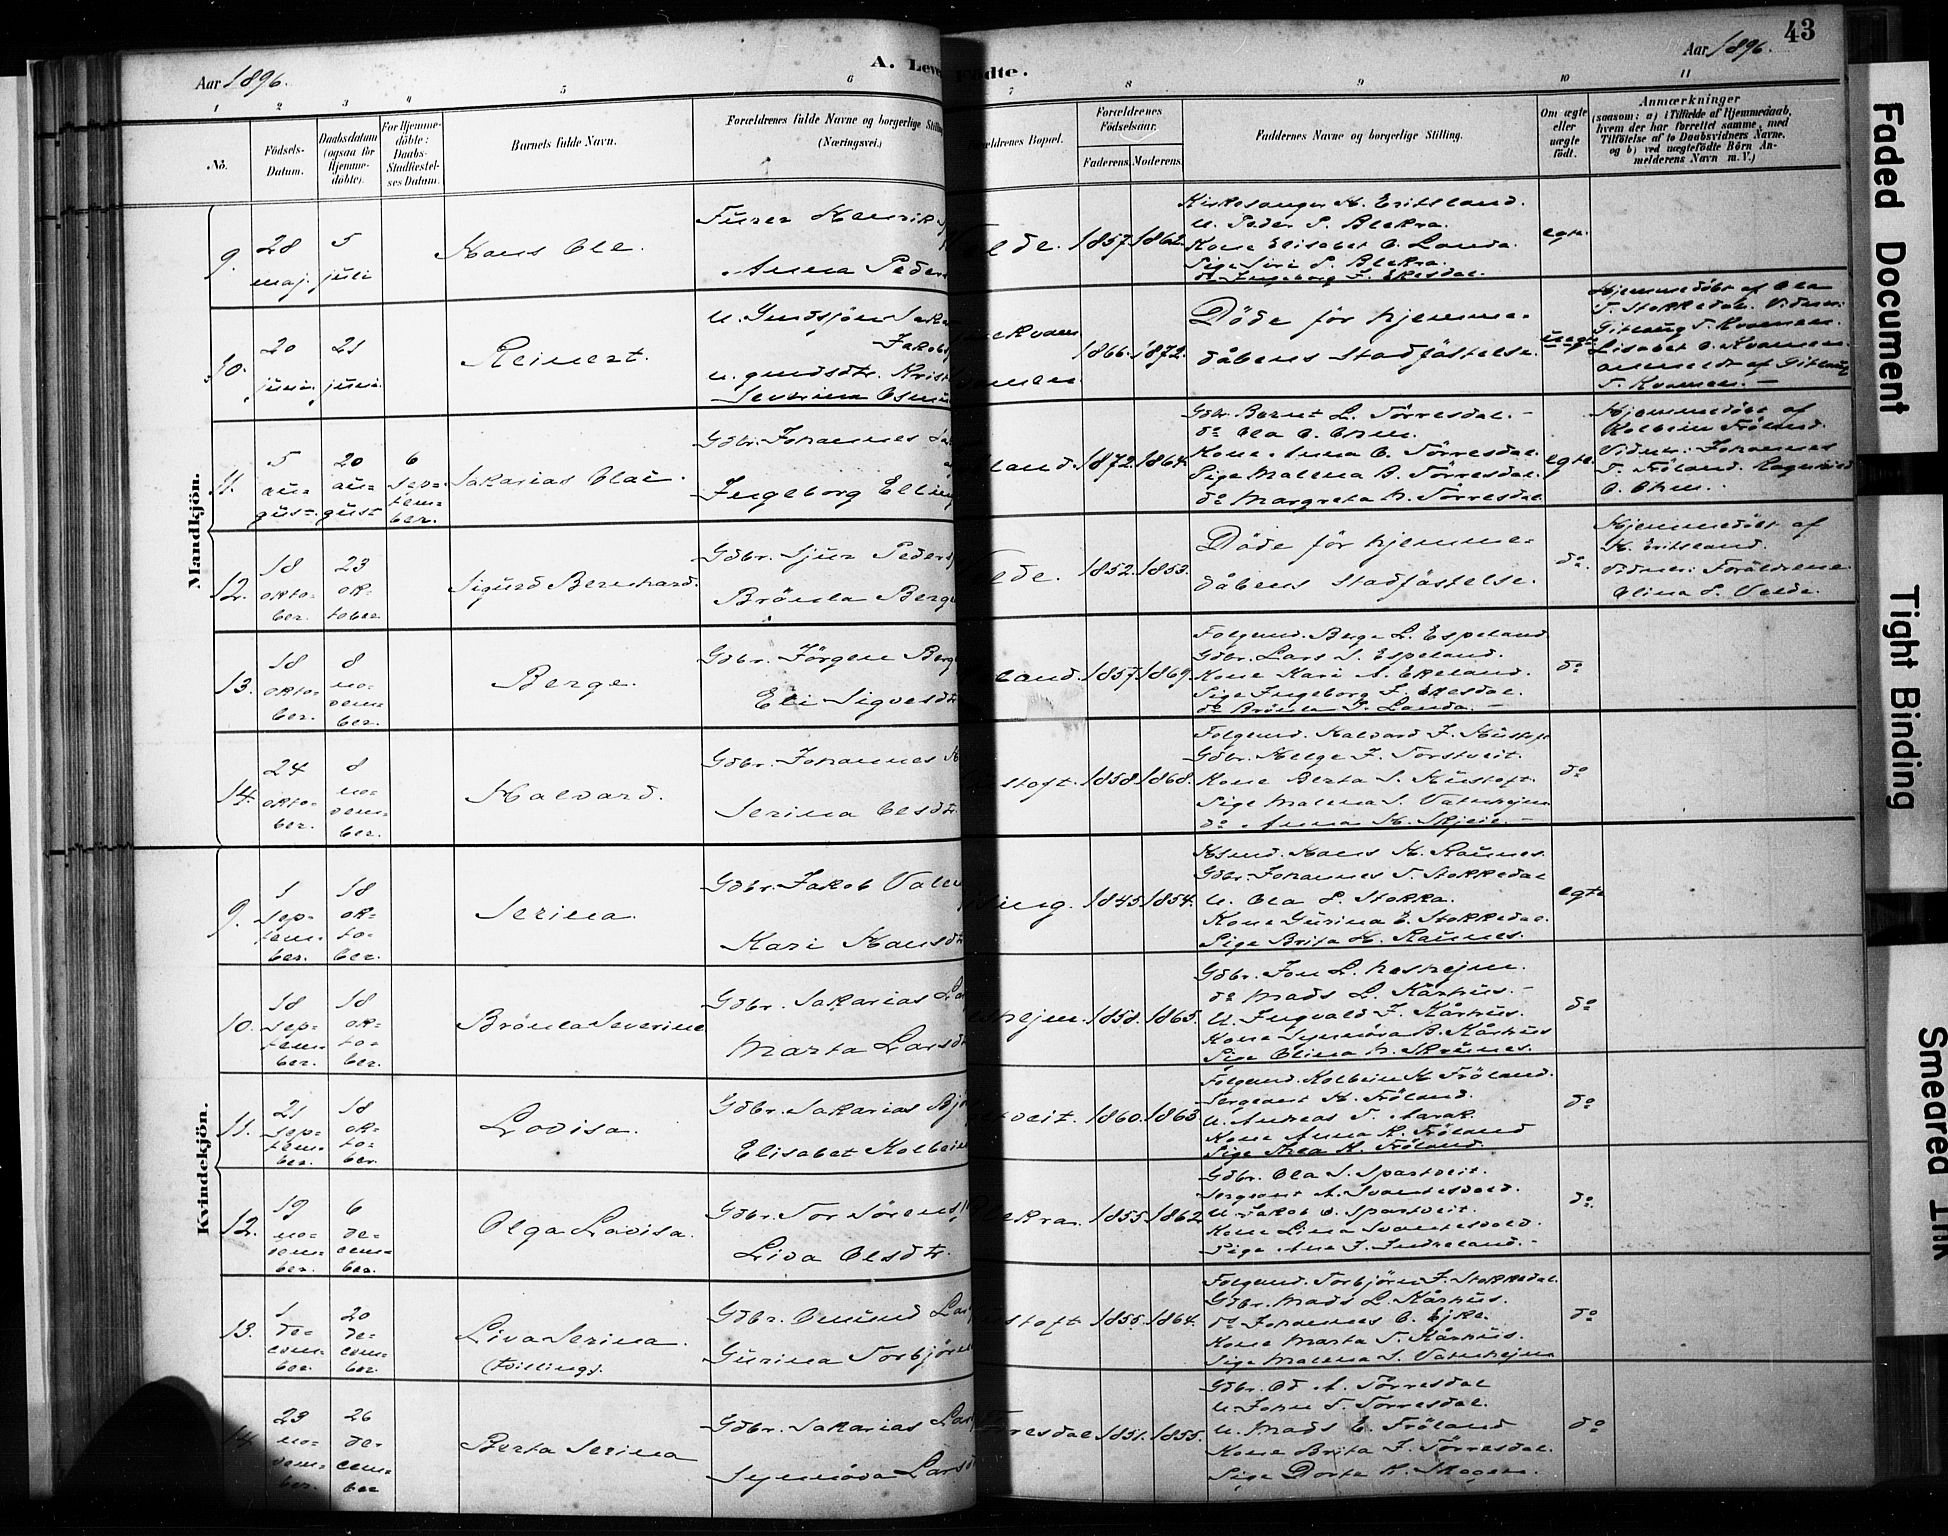 43
Aar 1896.
A. Leve
Födte.
Aar 1896.
1 2 3 4 5 6 7 8 9 10 11
No.
Födsels-Datum.
Daabsdatum (ogsaa for Hjemme-döbte).
For Hjemme-döbte: Daabs-Stadfæstel-ses Datum.
Barnets fulde Navn.
Forældrenes fulde Navne og borgerlige Stilling (Næringsvei.)
ældrenes Bopæl.
Forældrenes Födselsaar.
Faderens. Moderens.
Faddernes Navne og borgerlige Stilling.
Om ægte eller uægte födt.
Anmærkninger
(saasom: a) i Tilfælde af Hjemmedaab,
hvem der har forrettet samme, med
Tilföielse af to Daabsvidners Navne,
og b) ved uægtefödte Börn An-
melderens Navn m. V.)
Mandkjön.
9.
28 maj.
5 juli
Hans Ole.
Furer Henrik
Anna Peders
elde.
1857. 1862.
Kirkesanger H. Eritsland.
U. Peder P. Blekra.
Kone Elisabet O. Landa.
Pige Siri P. Blekra.
do Ingeborg J. Ekesdal.
egte.
10.
20 juni.
21 juni.
Reinert.
Jakobs
Severina Osmu
1866. 1872.
Döde för hjemme-
dåbens Stadfästelse.
uegte
Hjemmedöbt af Ola
T. Stokkedal. Vidner:
Gitmug T. Kvamen.
Lisabet O. Kvamen.
anmeldt af Gitmug
T. Kvamen. —
11.
5 au-gust.
20 au-gust
6 Sep-tem-ber.
Sakarias Olai.
Gdbr. Johannes
Ingeborg Elling
land.
1872. 1864.
Gdbr. Bernt L. Törresdal. -
do Ola O. Ohm.
Kone Anna O. Törresdal.
Pige Malena B. Törresdal.
do Margreta N. Törresdal
egte.
Hjemmedöbt af
Kolbein Fröland.
Vidner: Johannes
T. Fröland. Ragnhild
O. Ohm.
12.
18 okto-ber.
23 ok-tober
Sigurd Bernhard.
Gdbr. Sjur Peders
Brönla Berge
elde.
1852. 1853.
Döde för hjemme-
dåbens stadfästelse.
do
Hjemmedöbt af
H. Eritsland.
Vidner: Foräldrene
Olina S. Velde.
13.
18 okto-ber.
8 no-vem-ber.
Berge.
Gdbr. Jörgen Berg
Eli Sigvesdtr
land.
1857. 1869.
Folgemd. Berge L. Espeland
Gdbr. Lars S. Espeland.
Kone Kari A. Ekeland.
Pige Ingeborg J. Ekesdal.
do Brönla P. Landa. -
do
14.
24 okto-ber.
8 no-vem-ber.
Halvard.
Gdbr. Johannes H
Serina Olsdtr
stoft.
1858. 1868.
Folgemd. Halvard J. Hustoft
Gdbr. Helge J. Torstveit.
Kone Berta S. Hustoft.
Pige Malena S. Vatnhejm
do Anna H. Skjeie. -
do
Kvindekjön.
9.
1 Sep-tem-ber.
18 ok-to-ber.
Serina.
Gdbr. Jakob Valen
Kari Hansdtr
1845. 1854.
Hsmd. Hans H. Raunes.
Gdbr. Johannes T. Stokkedal
U. Ola P. Stokka.
Kone Gurina E. Stokkedal.
Pige Brita H. Raunes.
egte
10.
18 Sep-tem-ber.
18 ok-to-ber.
Brönla Severine
Gdbr. Sakarias Lar
Marta Larsdtr
hejm.
1858. 1865.
Gdbr. Jon L. Neshejm.
do Mads L. Kårhus. -
U. Ingvald J. Kårhus.
Kone Synnöva B. Kårhus
Pige Olina N. Skrunes.
do
11.
21 Sep-tem-ber.
18 ok-to-ber.
Lovisa.
Gdbr. Sakarias Bj
Elisabet Kolbein
tveit.
1860. 1863.
Folgemd. Kolbein K. Fröland.
Sergeant K. Fröland.
U. Andreas T. Aarak.
Kone Anna K. Fröland
Pige Thea K. Fröland.
do
12.
19 no-vem-ber.
6 de-cem-ber.
Olga Lovisa.
Gdbr. Tor Sörens
Liva Olsdtr.
lekra.
1855. 1862
Gdbr. Ola S. Spastveit.
Sergeant A. Svantesvold.
U. Jakob O. Spastveit.
Kone Lina Svantesvold.
Pige Ane J. Indreland. -
do
13.
1 de-cem-ber.
20 de-cem-ber.
Liva Serina.
(tvillings).
Gdbr. Omund Lar
Gurina Torbjörn
ustoft
1855. 1864.
Folgemd. Torbjörn J. Stokkedal.
Gdbr. Mads L. Kårhus.
do Johannes O. Ejke.
Kone Marta T. Kårhus.
Pige Malena S. Vatnhejm
do
14.
23 no-vem-ber.
26 de-cem-ber
Berta Serina
Gdbr. Sakarias Lar
Synnöva Larsd
rresdal
1851. 1855.
Gdbr. Od A. Törresdal
U. John T. Torresdal.
U. Mads E. Fröland
Kone Brita J. Törresdal.
Pige Dorte K. Skogen.
do
Faded Document
Tight Binding
Smeared Ink